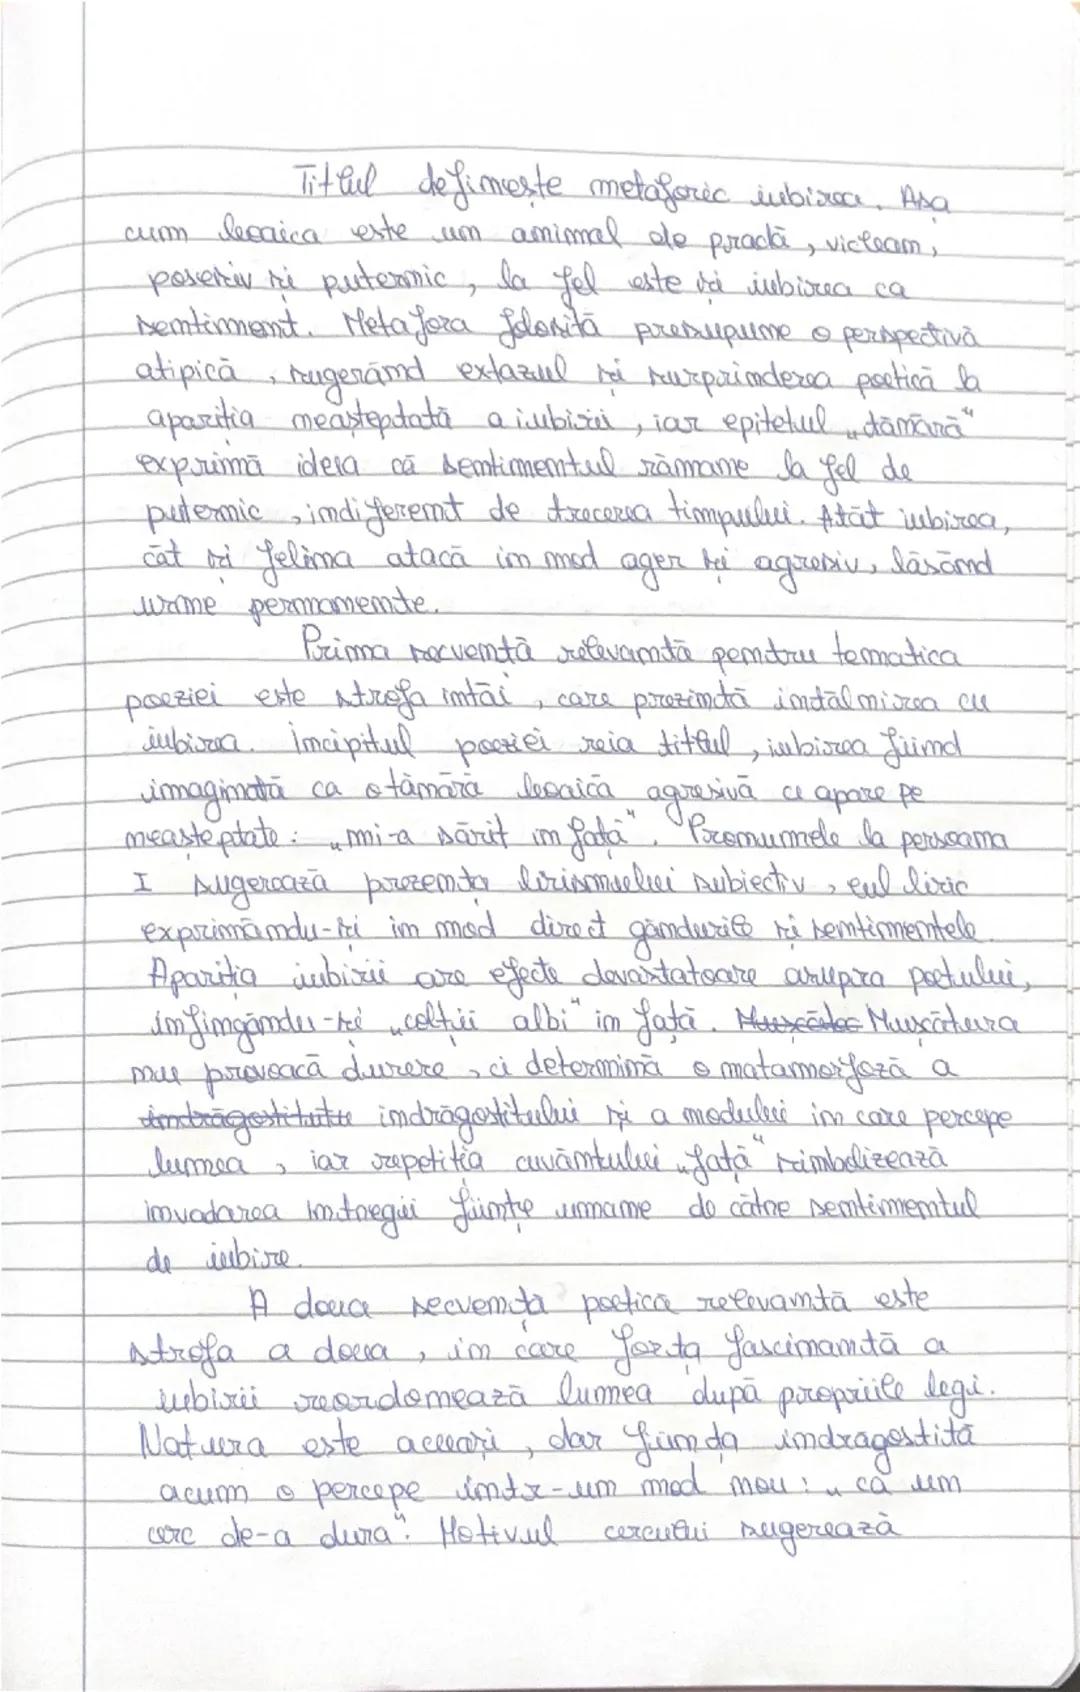 Titlul definește metaforic iubirea. Așa
cum leoaica este un animal de pradă, viclean,
posesiv și puternic, la fel este și iubirea ca
sentiment. Metafora folosită presupune o perspectivă
atipică, sugerând extazul și surprinderea poetică la
apariția neașteptată a iubirii, iar epitetul „tânără"
exprimă ideea că sentimentul rămane la fel de
puternic, indiferent de trecerea timpului. Atât iubirea,
cât și felina atacă în mod ager și agresiv, lăsând
urme permanente.
Prima secvență relevantă pentru tematica
poeziei este strofa întâi, care prezintă întâlnirea cu
iubirea. Incipitul poeziei reia titlul, iubirea fiind
imaginată ca o tânără leoaică agresivă ce apare pe
neașteptate: „mi-a sărit în față". Pronumele la persoana
I sugerează prezența lirismului subiectiv, eul liric
exprimându-și în mod direct gândurile și sentimentele.
Apariția iubirii are efecte devastatoare asupra poetului,
înfingându-și „colții albi" în față. Mușcătur Mușcătura
nu provoacă durere, ci determină o matamorfoză a
îndrăgostitului și a modului în care percepe
lumea, iar repetiția cuvântului „față" simbolizează
invadarea întregii ființe umane de către sentimentul
de iubire.
A doua secvență poetică relevantă este
strofa a doua, în care forța fascinantă a
iubirii reordonează lumea după propriile legi.
Natura este aceeași, dar ființa indragostită
acum o percepe într-un mod nou: „ca un
cerc de-a dura". Motivul cercului sugerează